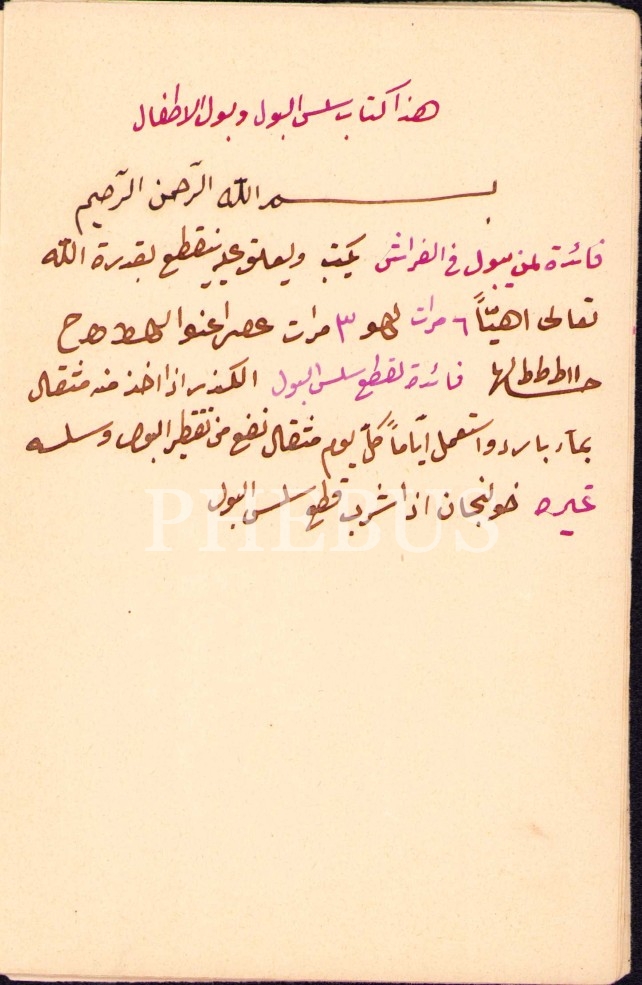 هذا كتاب سلس البول وبول الاطفال
بسم الله الرحمن الرحيم
فائدة لمن يبول في الفراش يكتب ويعلق عليه ينقطع بقدرة الله
تعالى اهيّاً ٦ مرات ٣ مرات
فائدة لقطع سلس البول الكندر اذا اخذ منه مثقال
بمآء بارد واستعمل ايّاماً كلّ يوم مثقال نفع من تقطير البول وسلسه
غيره خولنجان اذا شرب قطع سلس البول
PHEBUS